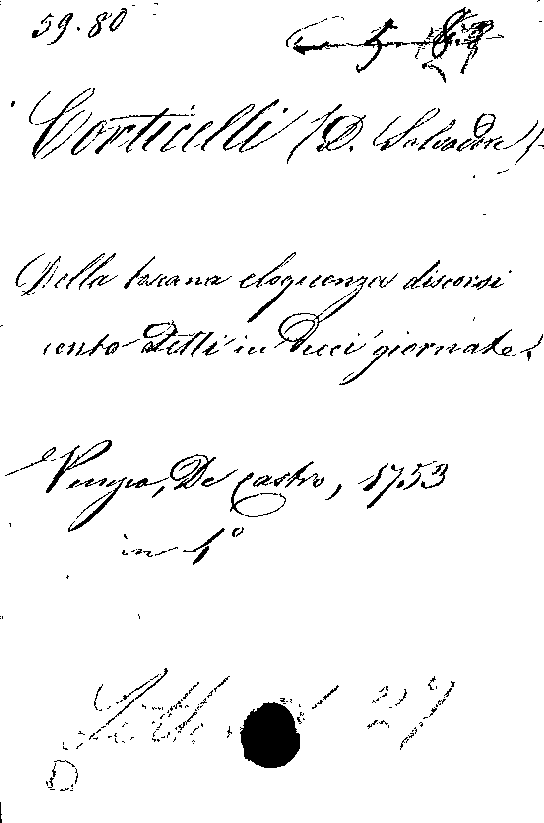 59.80
Corticelli (D. Salvadore).
Della toscana eloquenza discorsi
cento detti in dieci giornate.
Venezia, De Castro, 1753
in 4°
Lett. 27
D